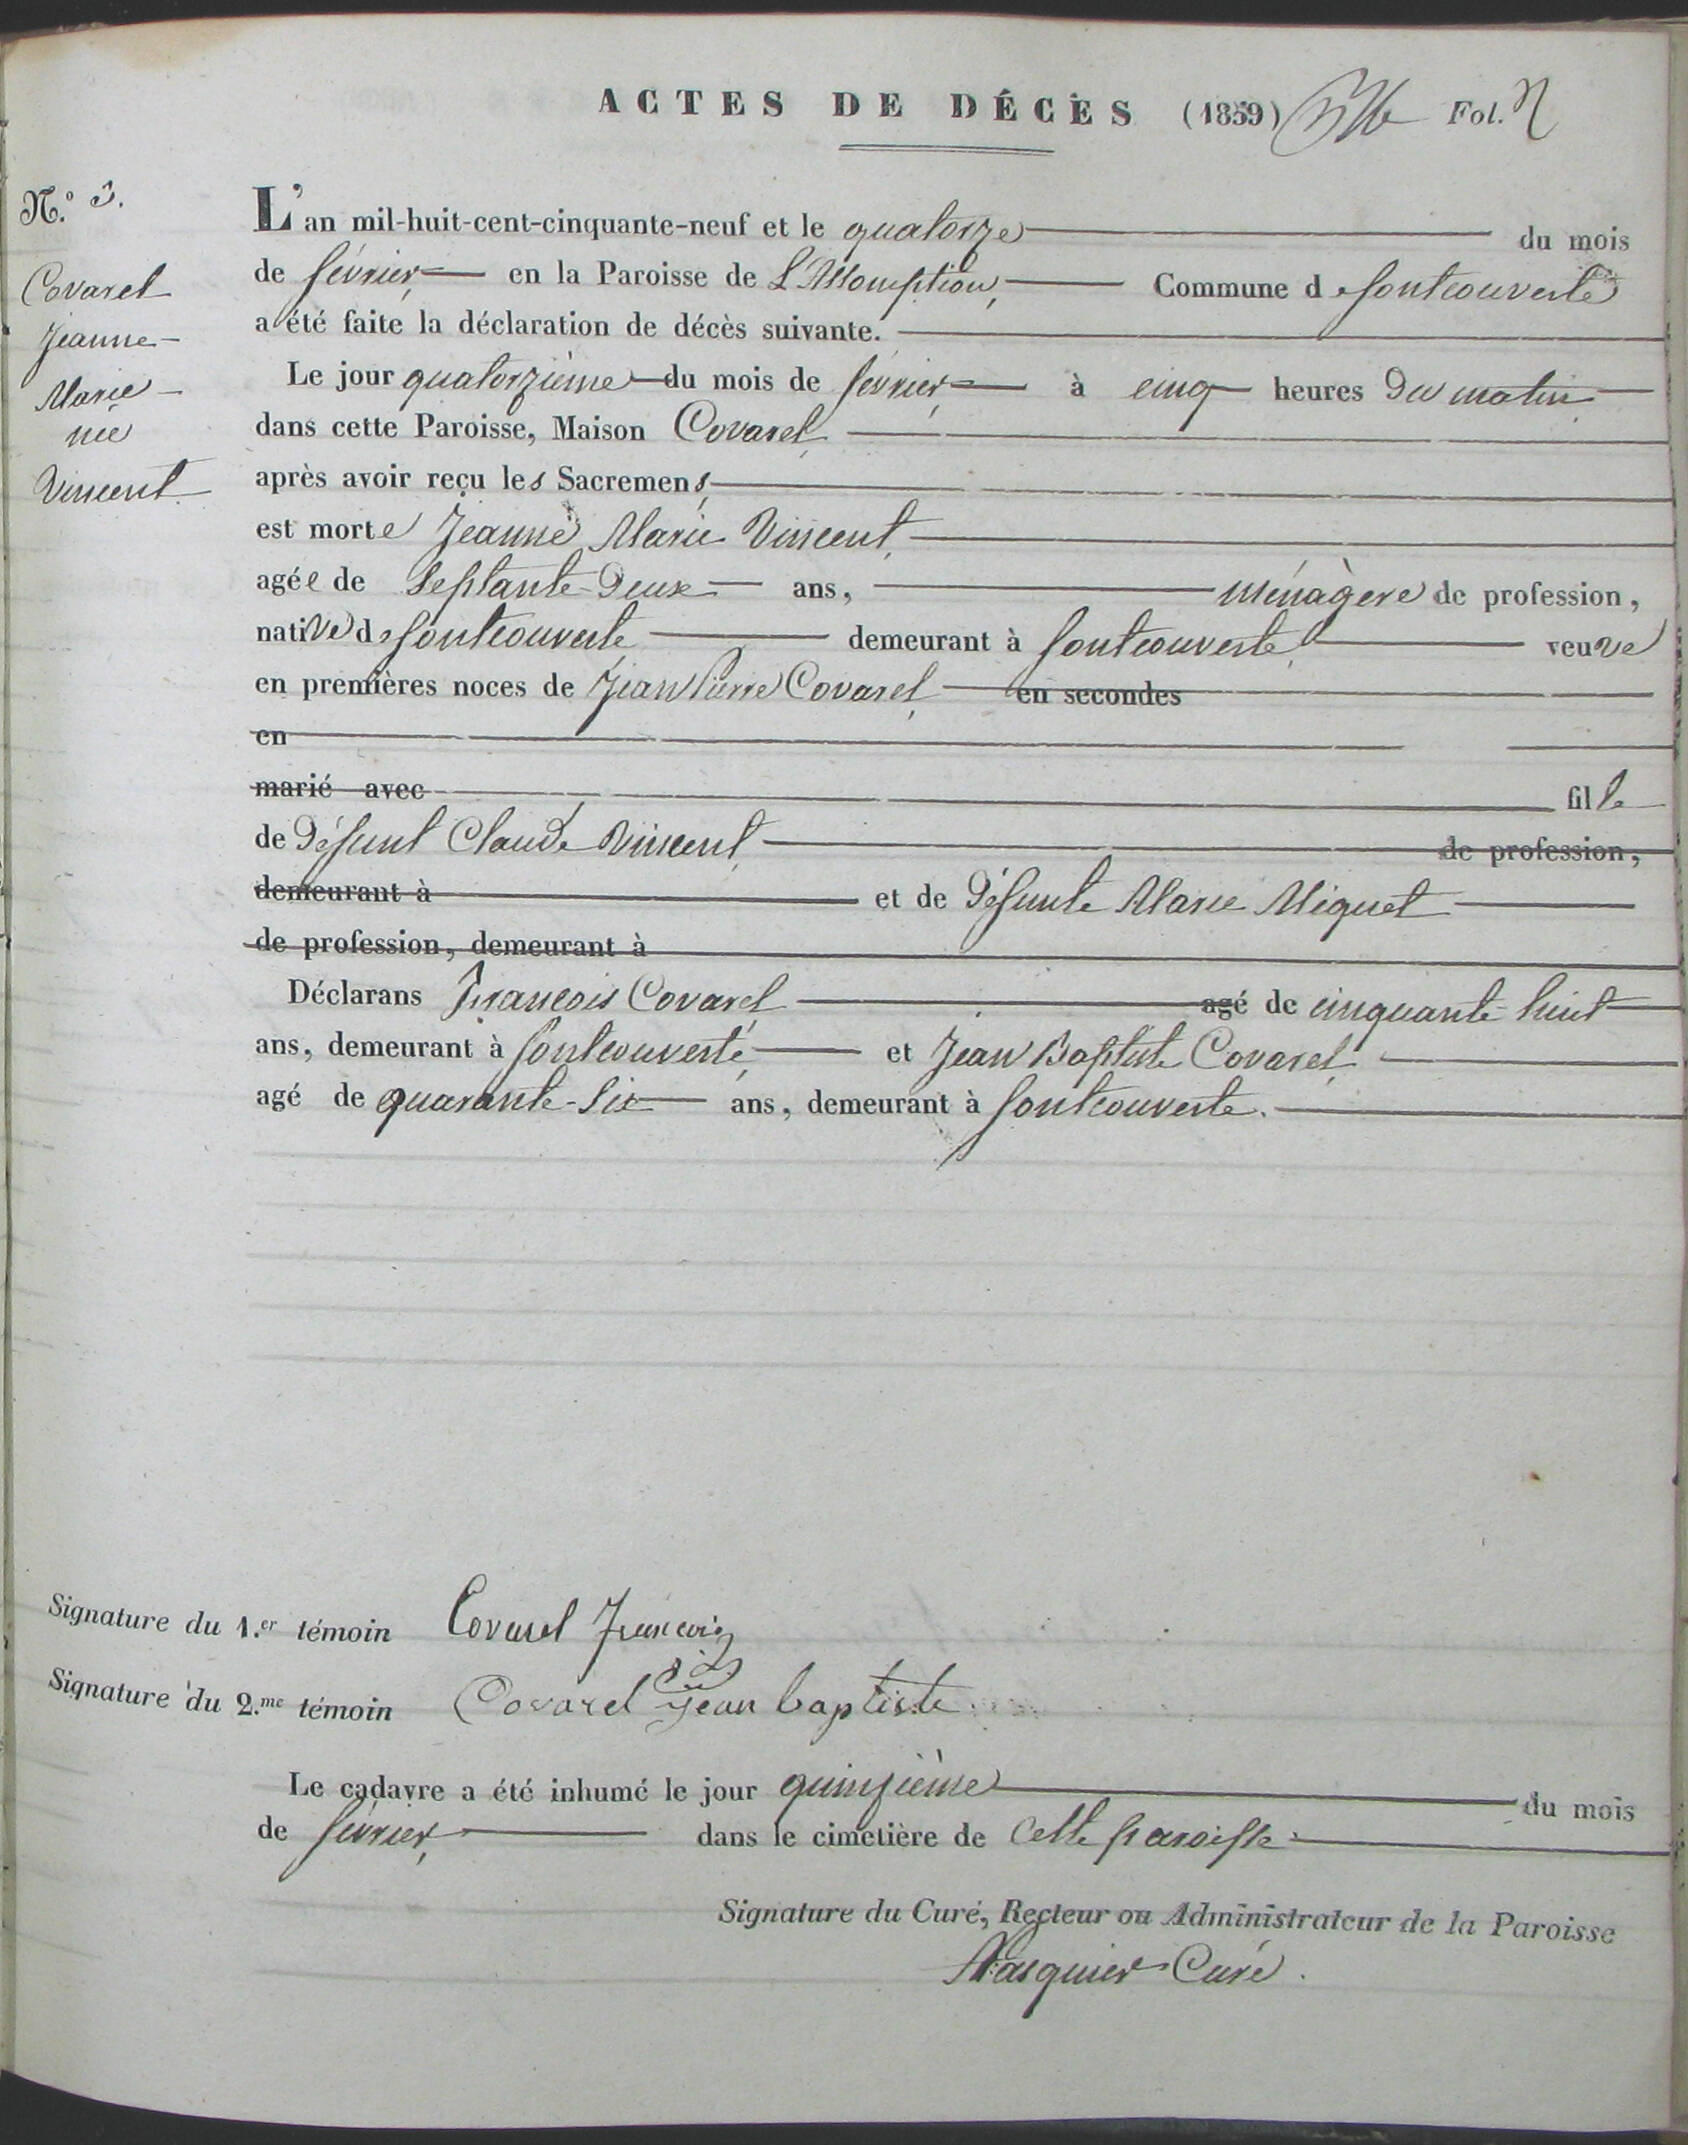 ACTES DE DÉCÈS (1859) Fol. 2
N.º 3.
Covarel
Jeanne-
Marie
née
Vincent
L'an mil-huit-cent-cinquante-neuf et le quatorze du mois
de février en la Paroisse de L'Assomption, Commune de fontcouverte
a été faite la déclaration de décès suivante.
Le jour quatorzième du mois de février à cinq heures du matin
dans cette Paroisse, Maison Covarel
après avoir reçu les Sacremens
est morte Jeanne Marie Vincent
agée de septante-deux ans, ménagère de profession,
native de fontcouverte demeurant à fontcouverte veuve
en premières noces de Jean Pierre Covarel en secondes
en
marié avec fille
de défunt Claude Vincent de profession,
demeurant à et de défunte Marie Miquet
de profession, demeurant à
Déclarans François Covarel agé de cinquante-huit
ans, demeurant à fontcouverte, et Jean Baptiste Covarel
agé de quarante-six ans, demeurant à fontcouverte.
Signature du 1.er témoin Covarel François
Signature du 2.me témoin Covarel Jean baptiste
Le cadavre a été inhumé le jour quinzième du mois
de février, dans le cimetière de cette paroisse
Signature du Curé, Recteur ou Administrateur de la Paroisse
Curé.